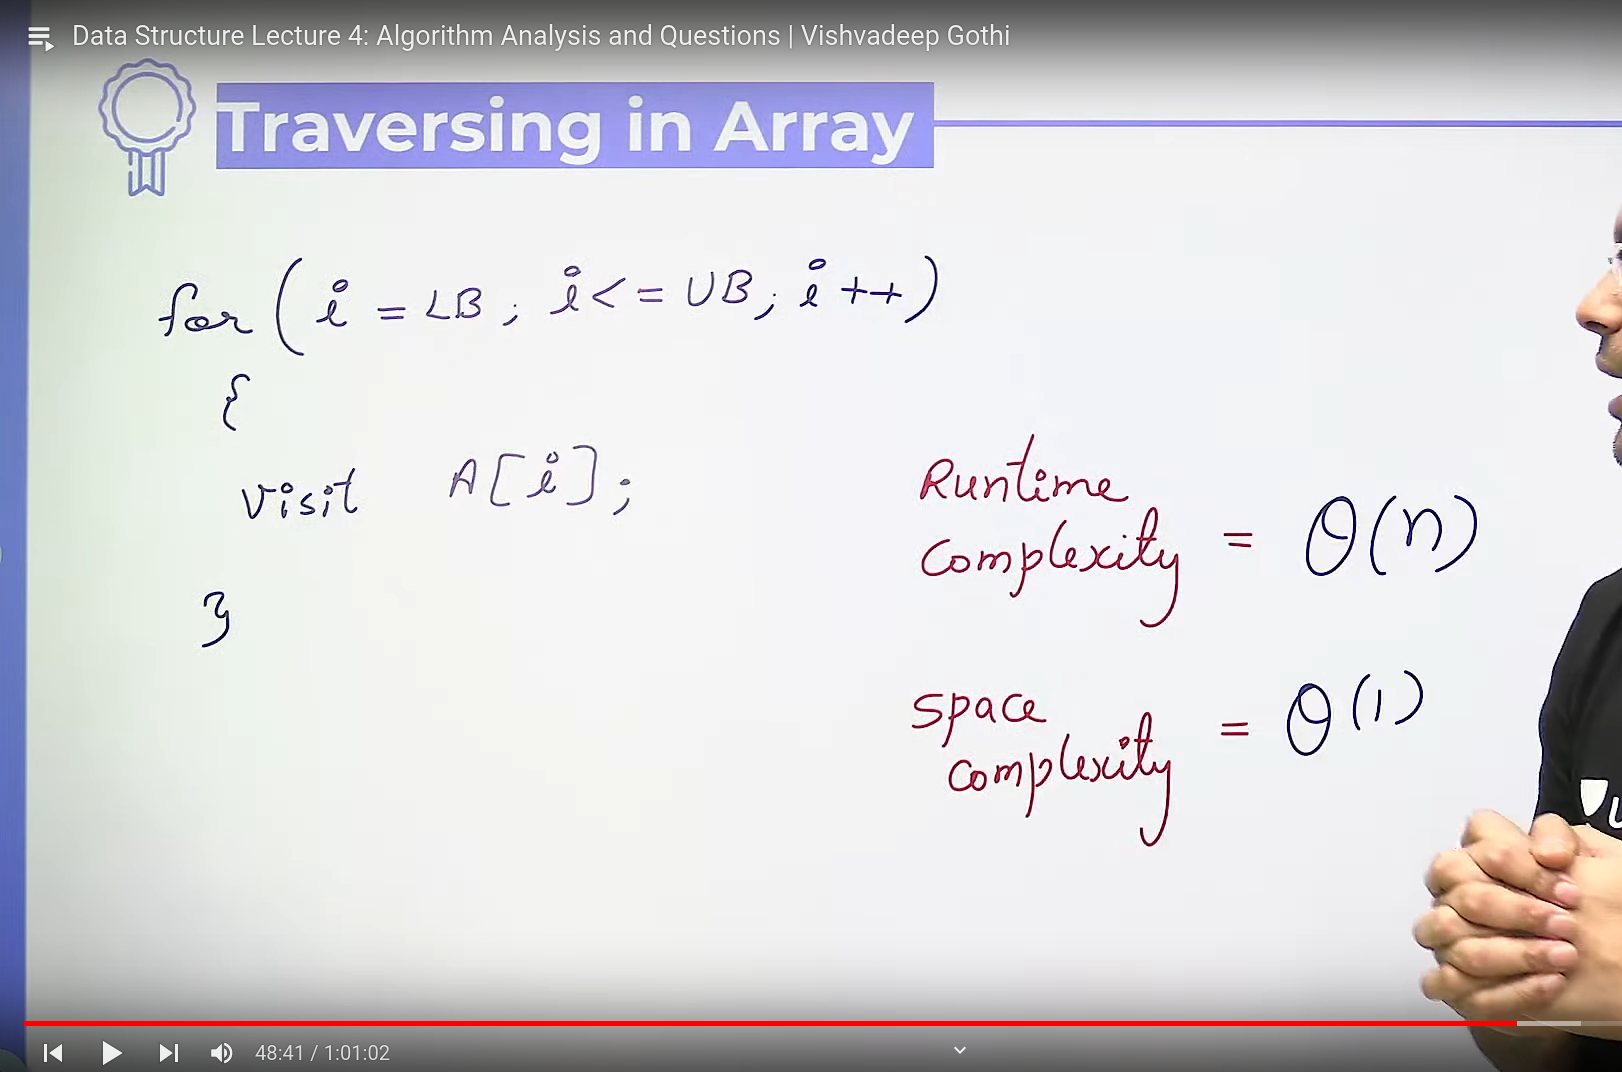 Data Structure Lecture 4: Algorithm Analysis and Questions | Vishvadeep Gothi
Traversing in Array
for ( i = LB ; i <= UB; i ++ )
{
visit A[i];
}
Runtime
Complexity = θ(n)
Space
complexity = θ(1)
48:41 / 1:01:02